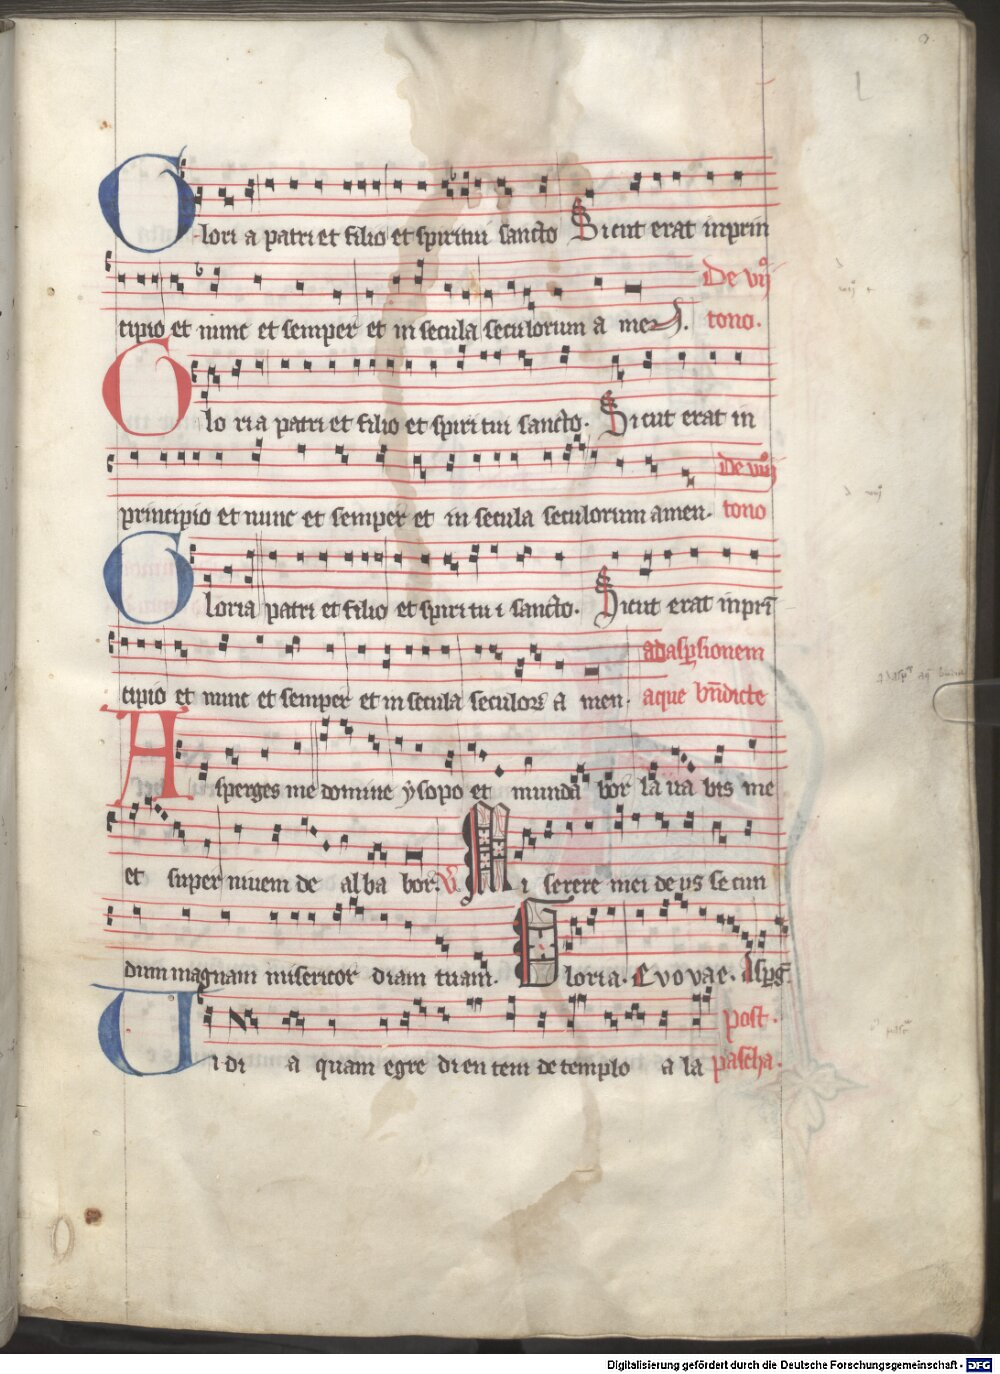 Glori a patri et filio et spiritui sancto Sicut erat inprin
De vij
cipio et nunc et semper et in secula seculorum a men. tono.
Glo ri a patri et filio et spiri tui sancto. Sicut erat in
De viij
principio et nunc et semper et in secula seculorum amen. tono
Gloria patri et filio et spiri tu i sancto. Sicut erat inpri
ad aspsionem
cipio et nunc et semper et in secula seculor a men. aque bndicte
Asperges me domine ysopo et munda bor la ua bis me
et super niuem de al ba bor. V Mi serere mei deus secun
dum magnam misericor diam tuam. Gloria. Evovae. Asperg
post
Vi di a quam egre di en tem de templo a la pascha.
Digitalisierung gefördert durch die Deutsche Forschungsgemeinschaft - DFG